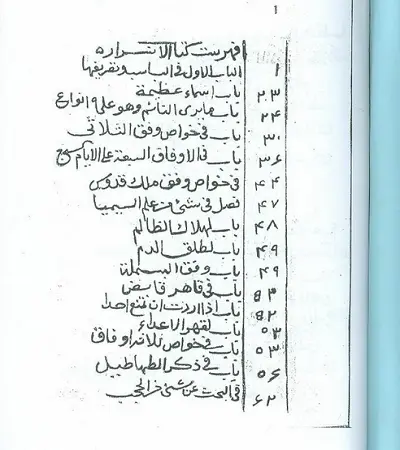 1
فهرست كتاب الاسرار
الباب الاول في الباسط وتعريفها ١
باب اسماء عظيمة ٢٣
باب ما يرى النائم وهو على ٩ انواع ٢٤
باب في خواص وفق الثلاثي ٣٠
باب في الاوفاق السبعة على الايام ٣٦
في خواص وفق ملك قدوس ٤٤
فصل في شئ من علم السيميا ٤٧
باب لهلاك الظالم ٤٨
باب لطلق الدم ٤٩
باب وفق البسملة ٤٩
باب في قاهر قابض
باب اذا اردت ان تمنع احدا
باب لقهر الاعداء ٥٣
باب في خواص ثلاثة اوفاق ٥٣
باب في ذكر الطهاطيل ٥٦
في البحث عن شئ ٦٢